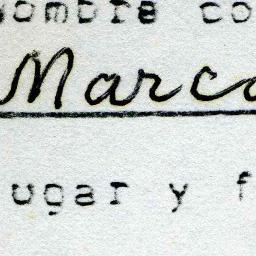 ombre co
Marco
ugar y f